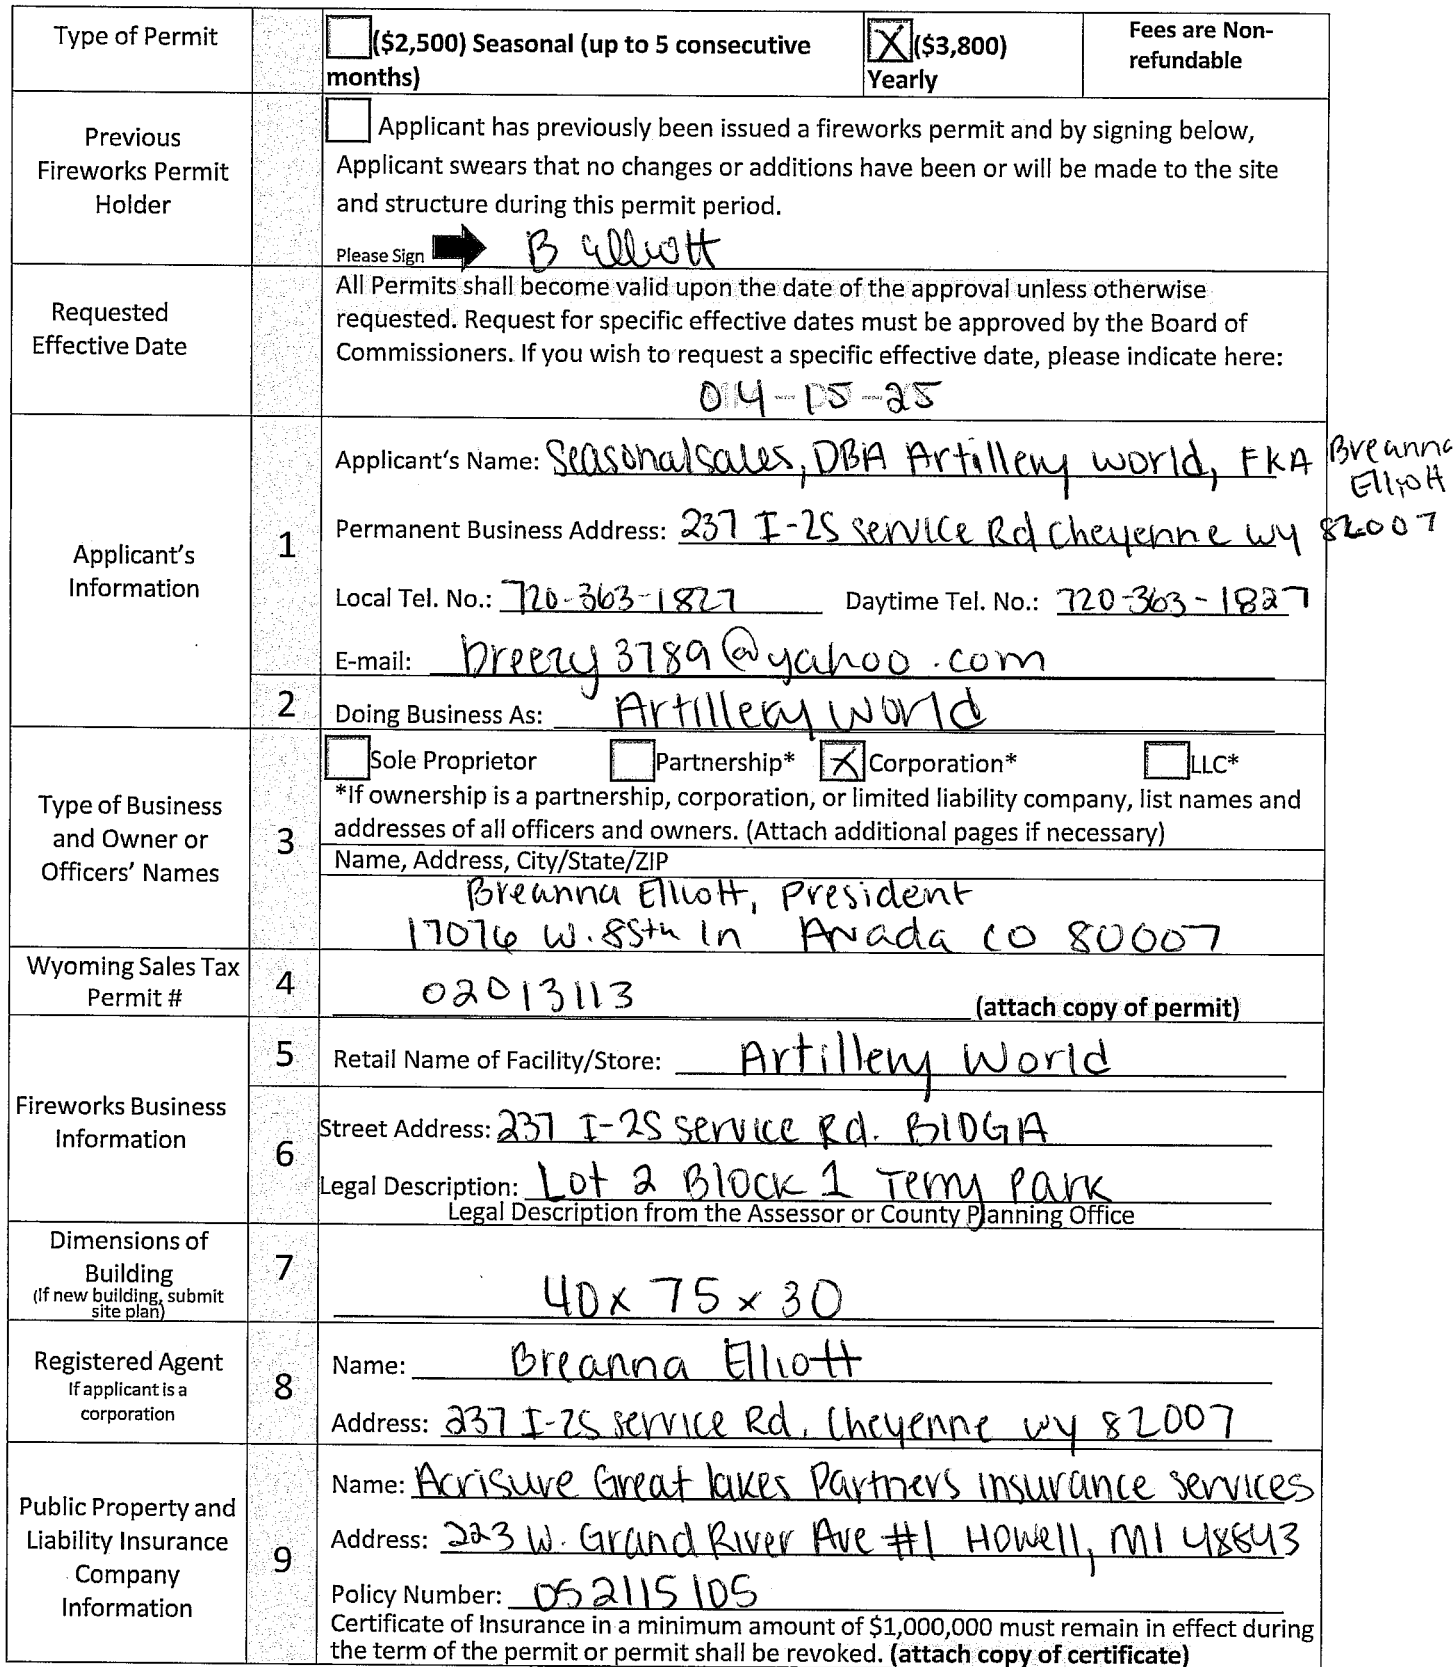 Type of Permit
($2,500) Seasonal (up to 5 consecutive
months)
X ($3,800)
Yearly
Fees are Non-
refundable
Previous
Fireworks Permit
Holder
Applicant has previously been issued a fireworks permit and by signing below,
Applicant swears that no changes or additions have been or will be made to the site
and structure during this permit period.
Please Sign B Elliott
Requested
Effective Date
All Permits shall become valid upon the date of the approval unless otherwise
requested. Request for specific effective dates must be approved by the Board of
Commissioners. If you wish to request a specific effective date, please indicate here:
Applicant's
Information
1
Applicant's Name: Seasonal sales, DBA Artillery world, FKA Breanna
Elliott
Permanent Business Address: 237 I-25 service Rd Cheyenne wy 82007
Local Tel. No.: 720-363-1827 Daytime Tel. No.: 720-363-1827
E-mail: breezy3789@yahoo.com
2
Doing Business As: Artillery World
Type of Business
and Owner or
Officers' Names
3
Sole Proprietor Partnership* X Corporation* LLC*
*If ownership is a partnership, corporation, or limited liability company, list names and
addresses of all officers and owners. (Attach additional pages if necessary)
Name, Address, City/State/ZIP
Breanna Elliott, President
17076 W. 85th ln Arvada CO 80007
Wyoming Sales Tax
Permit #
4
02013113 (attach copy of permit)
Fireworks Business
Information
5
Retail Name of Facility/Store: Artillery World
6
Street Address: 237 I-25 service Rd. BlDG A
Legal Description: Lot 2 Block 1 Terry Park
Legal Description from the Assessor or County Planning Office
Dimensions of
Building
(If new building, submit
site plan)
7
40 x 75 x 30
Registered Agent
If applicant is a
corporation
8
Name: Breanna Elliott
Address: 237 I-25 service Rd. Cheyenne wy 82007
Public Property and
Liability Insurance
Company
Information
9
Name: Acrisure Great lakes Partners insurance services
Address: 223 W. Grand River Ave #1 Howell, MI 48843
Policy Number: 052115105
Certificate of Insurance in a minimum amount of $1,000,000 must remain in effect during
the term of the permit or permit shall be revoked. (attach copy of certificate)